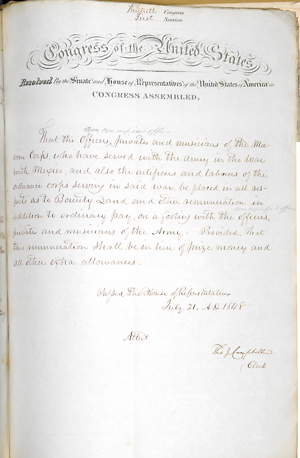 Thirtieth Congress
First Session
Congress of the United States
Resolved by the Senate and House of Representatives of the United States of America in
CONGRESS ASSEMBLED,
non commissioned officers
That the Officers, privates and musicians of the Ma-
rine Corps, who have served with the Army in the War
with Mexico and also the artificers and laborers of the
ordnance corps serving in said war, be placed in all res-
pects as to Bounty Land and other remuneration in
addition to ordinary pay, on a footing with the officers,
non commissioned officers
privates and musicians of the Army. Provided, that
this remuneration shall be in lieu of prize money and
all other extra allowances.
Passed the House of Representatives
July 21. A.D. 1848
Attest
Tho J. Campbell
Clerk